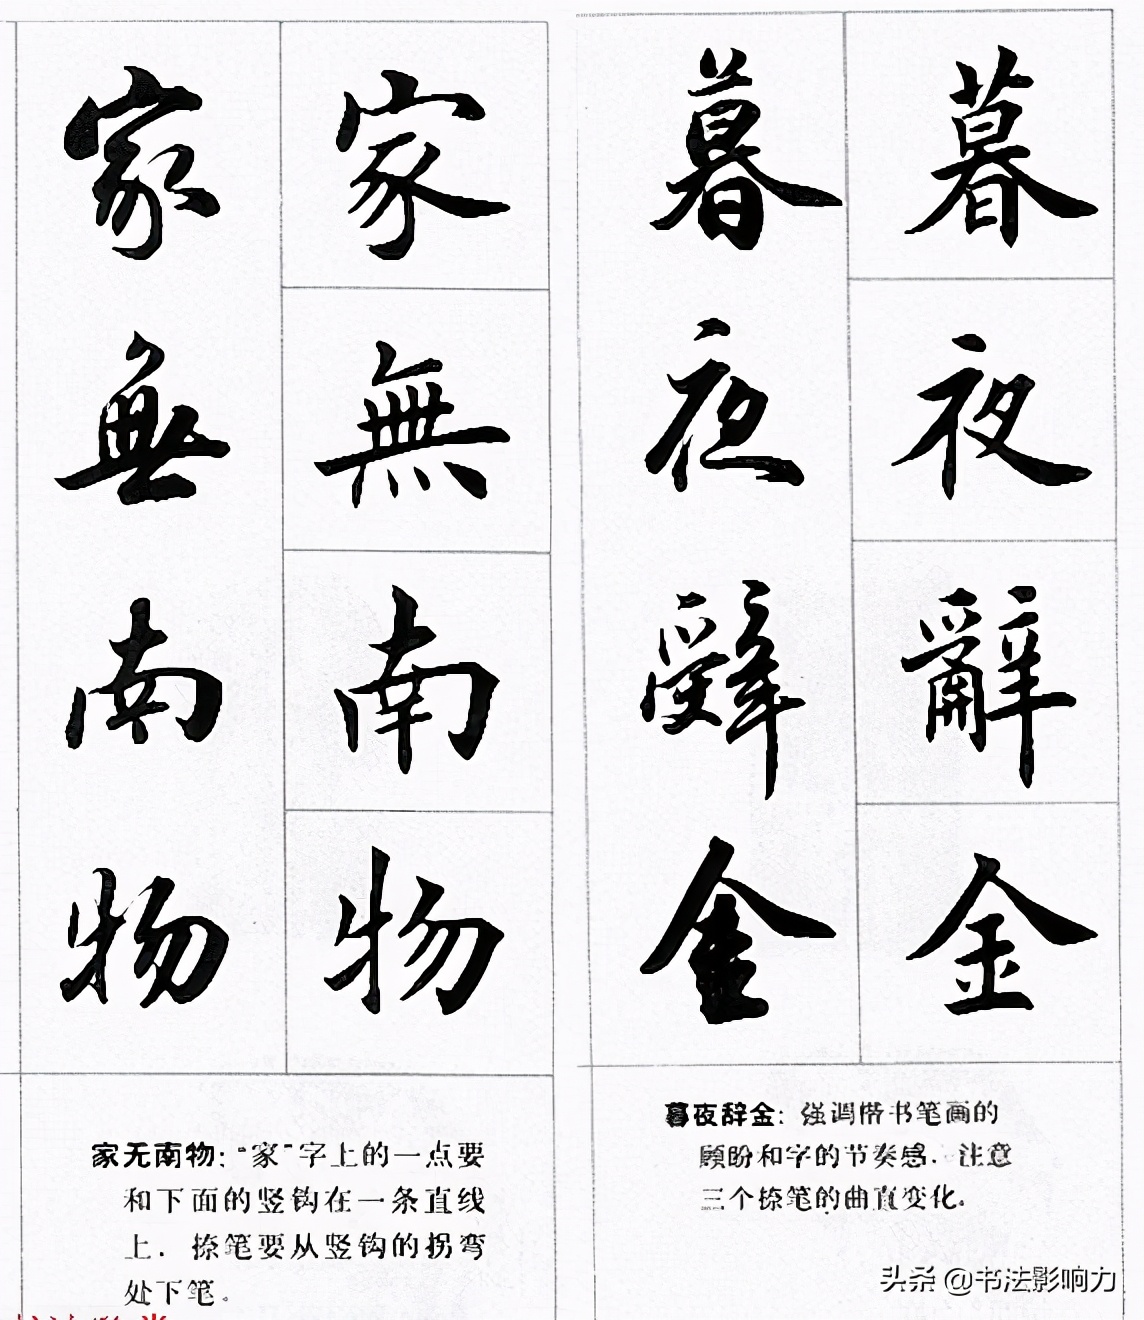 家 家 暮 暮
無 無 夜 夜
南 南 辭 辭
物 物 金 金
家无南物：“家”字上的一点要
和下面的竖钩在一条直线
上．捺笔要从竖钩的拐弯
处下笔。
暮夜辞金：强调楷书笔画的
顾盼和字的节奏感．注意
三个捺笔的曲直变化。
头条 @书法影响力